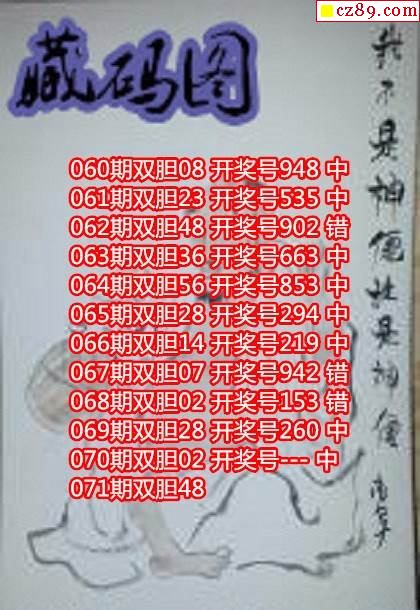 cz89.com
藏码图
060期双胆08 开奖号948 中
061期双胆23 开奖号535 中
062期双胆48 开奖号902 错
063期双胆36 开奖号663 中
064期双胆56 开奖号853 中
065期双胆28 开奖号294 中
066期双胆14 开奖号219 中
067期双胆07 开奖号942 错
068期双胆02 开奖号153 错
069期双胆28 开奖号260 中
070期双胆02 开奖号--- 中
071期双胆48
我不是神仙比是神仙